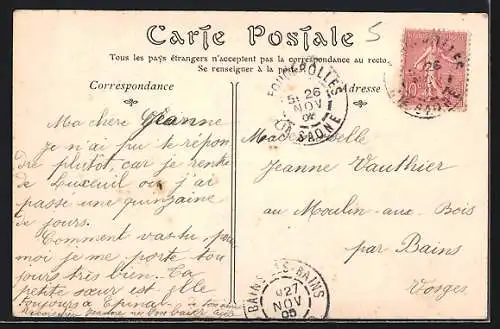 Carte Postale
5
Tous les pays étrangers n'acceptent pas la correspondance au recto.
Se renseigner à la poste.
Correspondance
Adresse
FOUGEROLLES
26
NOV
05
HTE SAÔNE
10
Ma chère Jeanne
Je n'ai pu te répon
dre plutôt, car je rentre
de Luxeuil ou j'ai
passé une quinzaine
de jours.
Comment vas-tu, pour
moi je me porte tou
jours très bien. Ta
petite sœur est elle
toujours à Epinal
Mademoiselle
Jeanne Vauthier
au Moulin-aux-Bois
par Bains
Vosges
BAINS-LES-BAINS
27
NOV
05